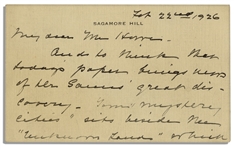 SAGAMORE HILL
Feb 22nd 1926
My dear Mr Howe -
And to think that
today's paper brings news
of the Gauss' great dis-
covery. Your "mystery
cities" sits beside the
"Unknown Lands" which